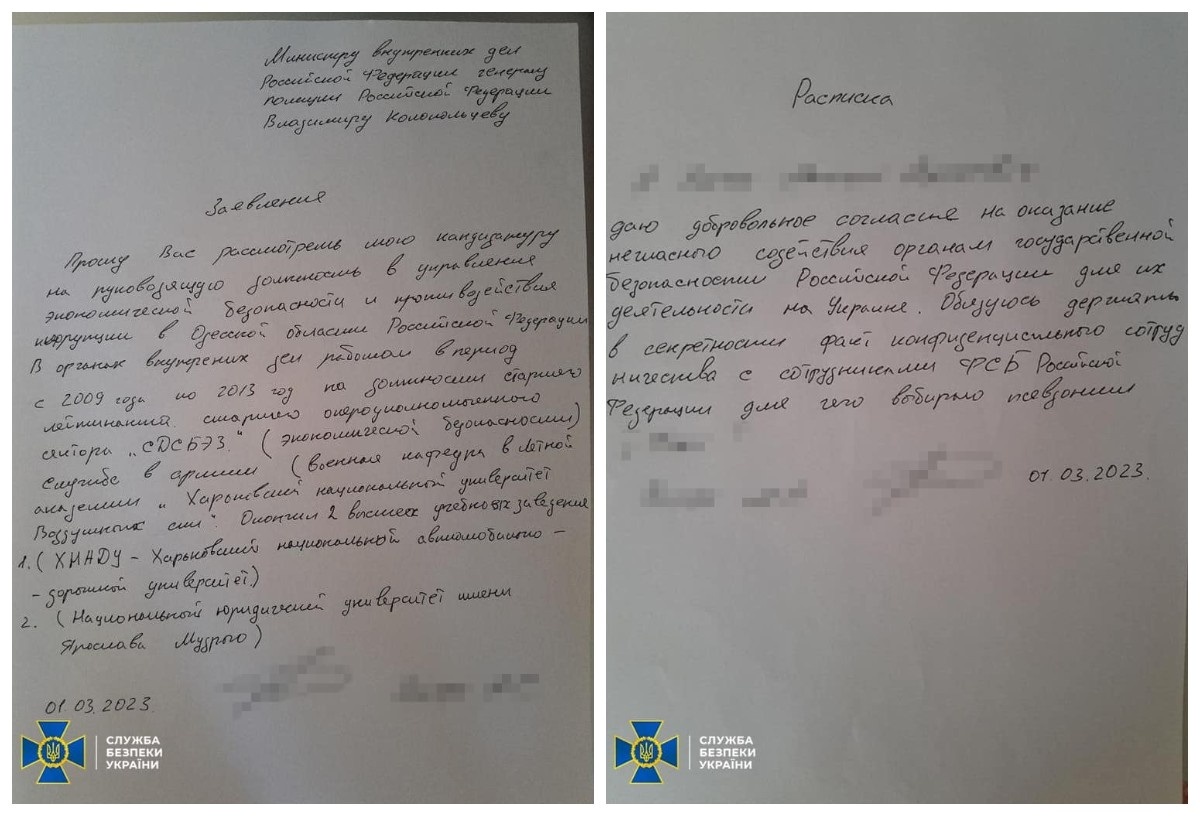 Министру внутренних дел
Российской Федерации генералу
полиции Российской Федерации
Владимиру Колокольцеву
Заявления
Прошу Вас рассмотреть мою кандидатуру
на руководящую должность в управления
экономической безопасности и противодействия
коррупции в Одесской области Российской Федерации
В органах внутрених дел работал в период
с 2009 года по 2013 год на должности старшего
лейтинанта старшего оперуполномоченного
сектора „СДСБЭЗ." (экономической безопасности)
Службе в армии (военная кафедра в Летной
академии „Харьковский национальный университет
Воздушных сил". Окончил 2 высших учебных заведения
1. (ХНАДУ - Харьковский национальной автомобильно -
- дорожной университет)
2. (Национальный юридический университет имени
Ярослава Мудрого)
01.03.2023
СЛУЖБА
БЕЗПЕКИ
УКРАЇНИ
Расписка
даю добровольное согласие на оказание
негласного содействия органам государственной
безопасности Российской Федерации для их
деятельности на Украине. Обязуюсь держать
в секретности факт конфиденциального сотруд
ничества с сотрудниками ФСБ Российской
Федерации для чего выбираю псевдоним
01.03.2023.
СЛУЖБА
БЕЗПЕКИ
УКРАЇНИ